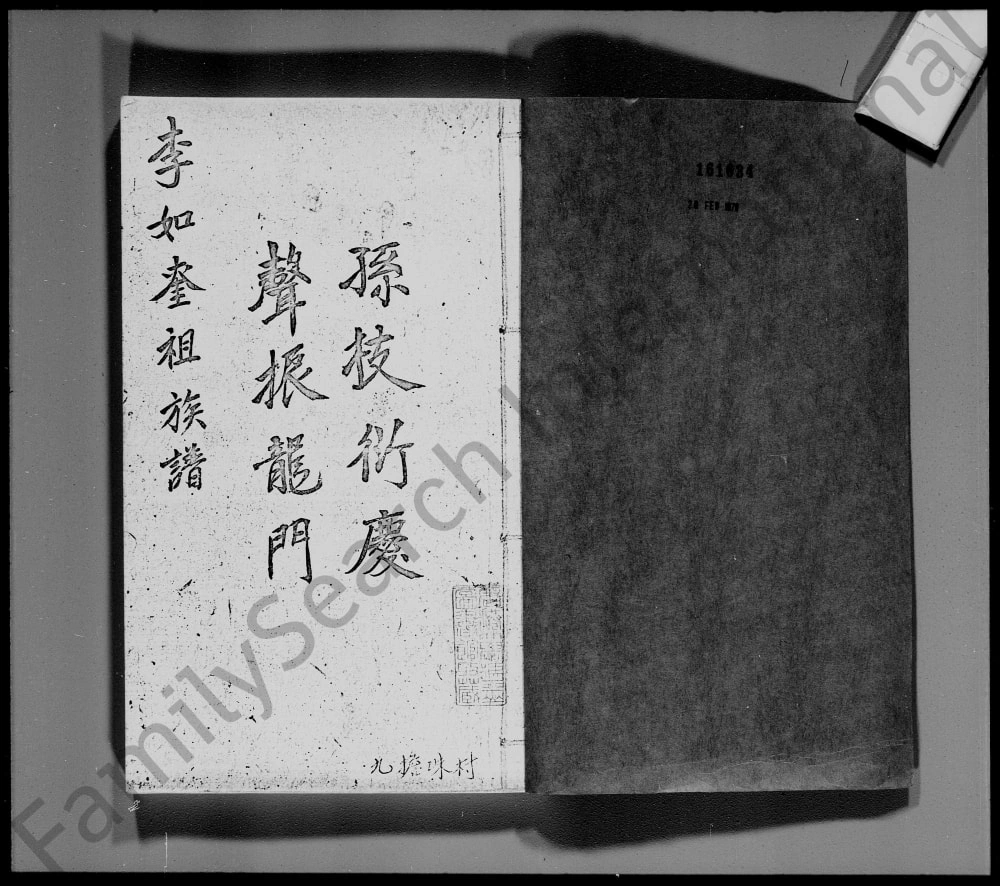 孫枝衍慶
聲振龍門
李如奎祖族譜
村珠擔九
161634
FamilySearch International